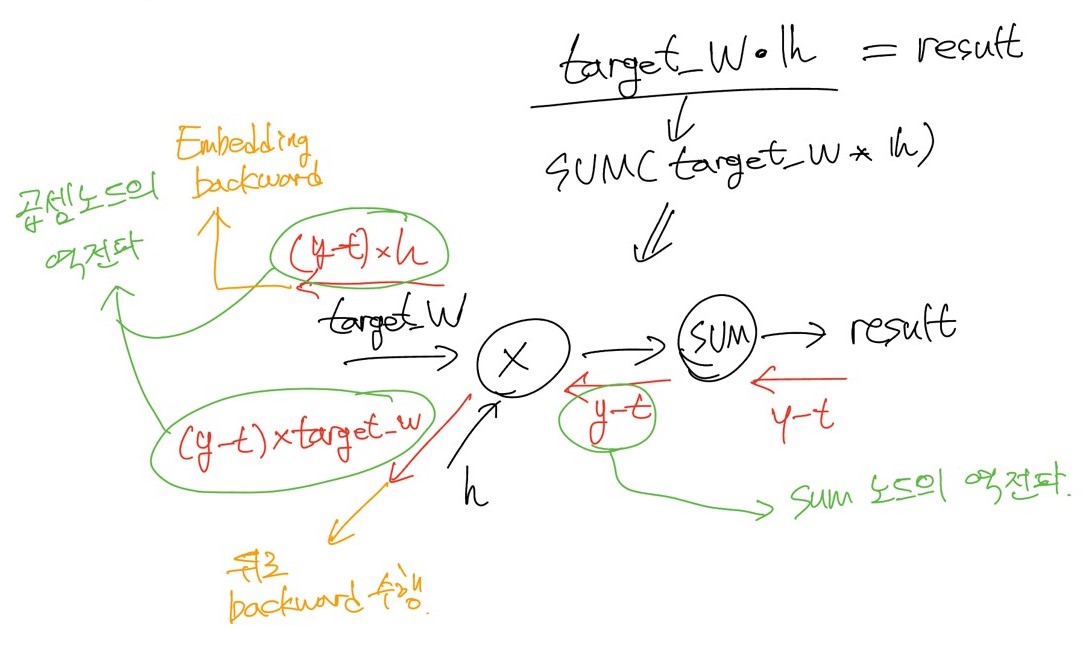 target_W·h = result
SUM(target_W * h)
Embedding
backward
곱셈노드의
역전파
(y-t)×h
target_W
×
SUM
result
y-t
y-t
(y-t)×target_w
h
sum 노드의 역전파.
뒤로
backward 수행.